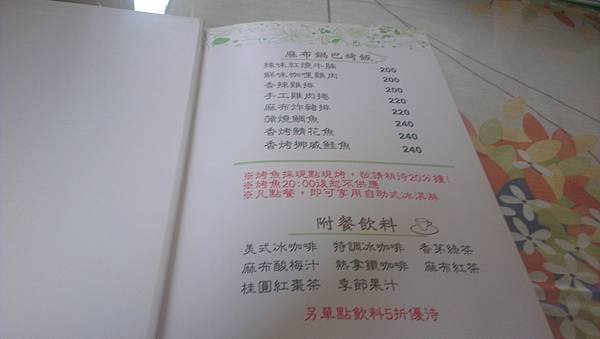 麻布鍋巴烤飯
辣味紅燒牛腩 200
鮮味咖哩雞肉 200
香辣雞排 200
手工雞肉捲 220
麻布炸豬排 220
蒲燒鯛魚 240
香烤鯖花魚 240
香烤挪威鮭魚 240
※烤魚採現點現烤，敬請稍待20分鐘！
※烤魚20:00後恕不供應
※凡點餐，即可享用自助式冰淇淋
附餐飲料
美式冰咖啡 特調冰咖啡 香茅綠茶
麻布酸梅汁 熱拿鐵咖啡 麻布紅茶
桂圓紅棗茶 季節果汁
另單點飲料5折優待